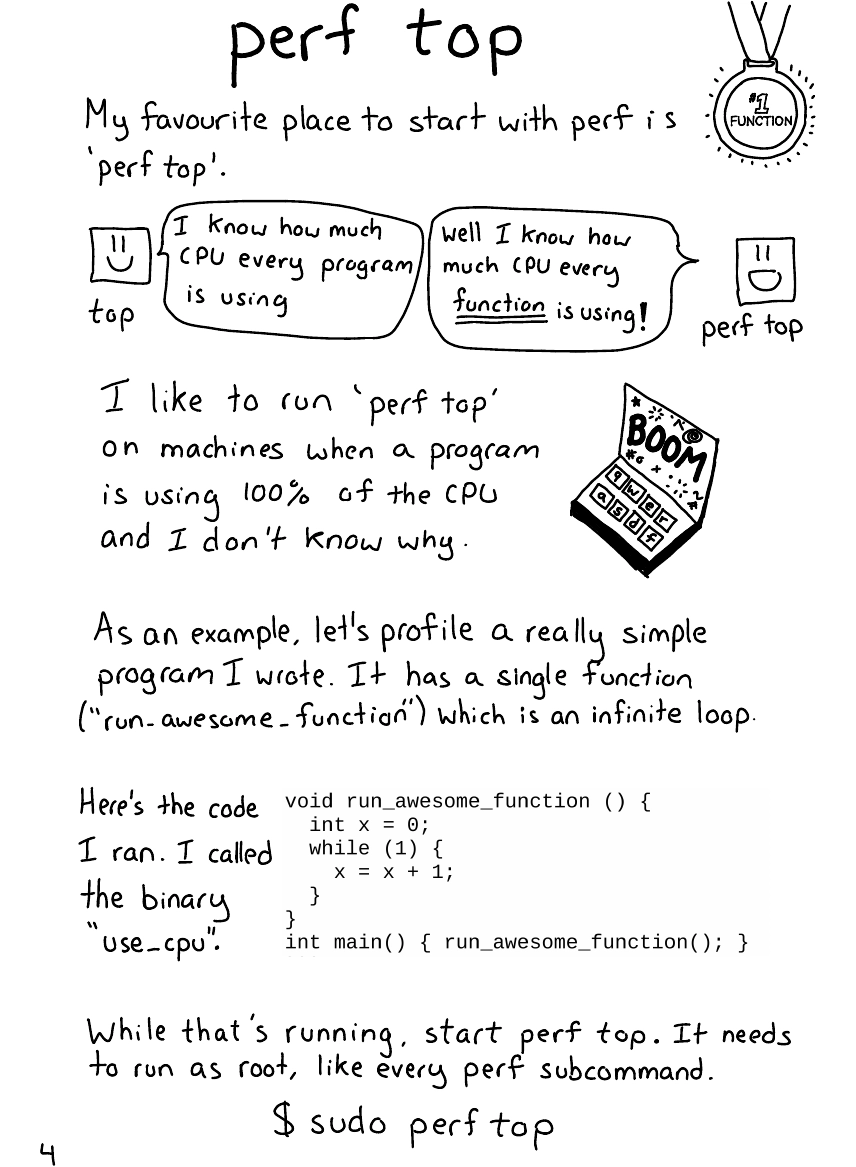 perf top
#1
FUNCTION
My favourite place to start with perf is
'perf top'.
I know how much
CPU every program
is using
top
Well I know how
much CPU every
function is using!
perf top
I like to run 'perf top'
on machines when a program
is using 100% of the CPU
and I don't know why.
BOOM
q w e r
a s d f
As an example, let's profile a really simple
program I wrote. It has a single function
("run_awesome_function") which is an infinite loop.
Here's the code
I ran. I called
the binary
"use_cpu".
void run_awesome_function () {
  int x = 0;
  while (1) {
    x = x + 1;
  }
}
int main() { run_awesome_function(); }
While that's running, start perf top. It needs
to run as root, like every perf subcommand.
$ sudo perf top
4